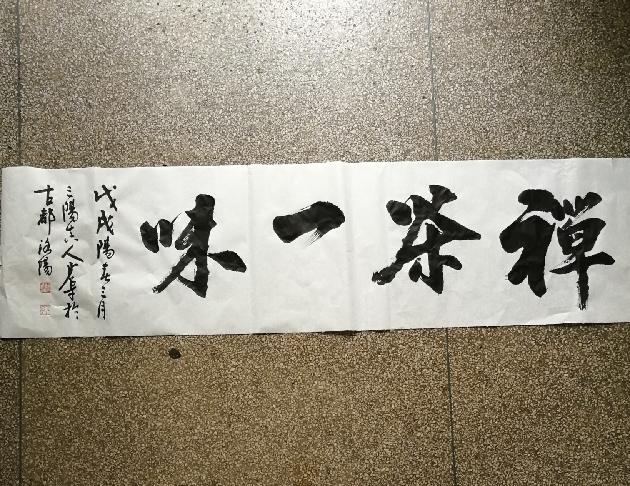 禪茶一味
戊戌陽春三月
三陽古人書於
古都洛陽